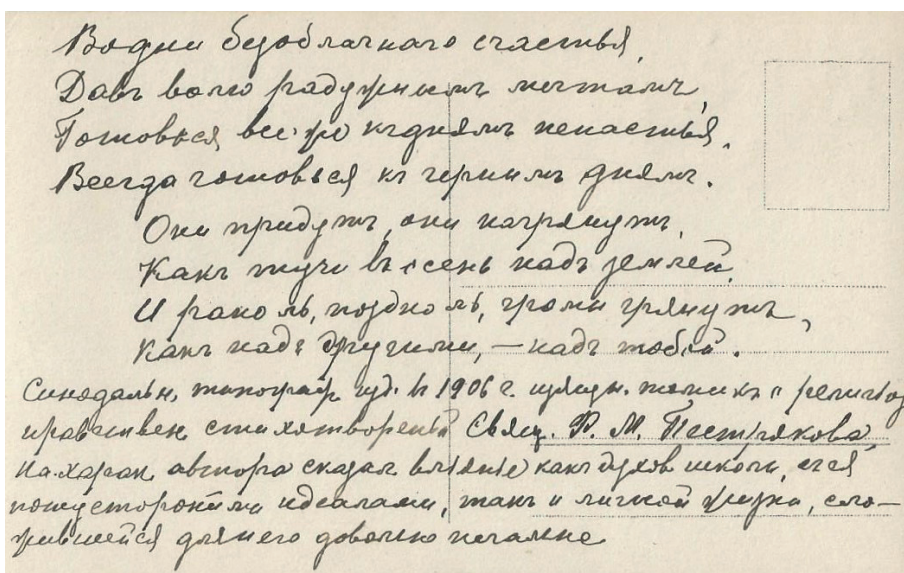 Во дни безоблачнаго счастья,
Давъ волю радужнымъ мечтамъ,
Готовься все же къ днямъ ненастья,
Всегда готовься къ чернымъ днямъ.
Они придутъ, они нагрянутъ,
Какъ тучи въ осень надъ землей,
И рано ль, поздно ль, громы грянутъ,
Какъ надъ другими, — надъ тобой.
Синодальн. типограф. изд. въ 1906 г. томикъ религіоз
нравствен стихотвореній Свящ. Ѳ. М. Пестрякова,
На характ. автора сказал вліяніе какъ духов школы, съ ея
потусторонними идеалами, такъ и личной жизни, сло-
жившейся для него довольно печально